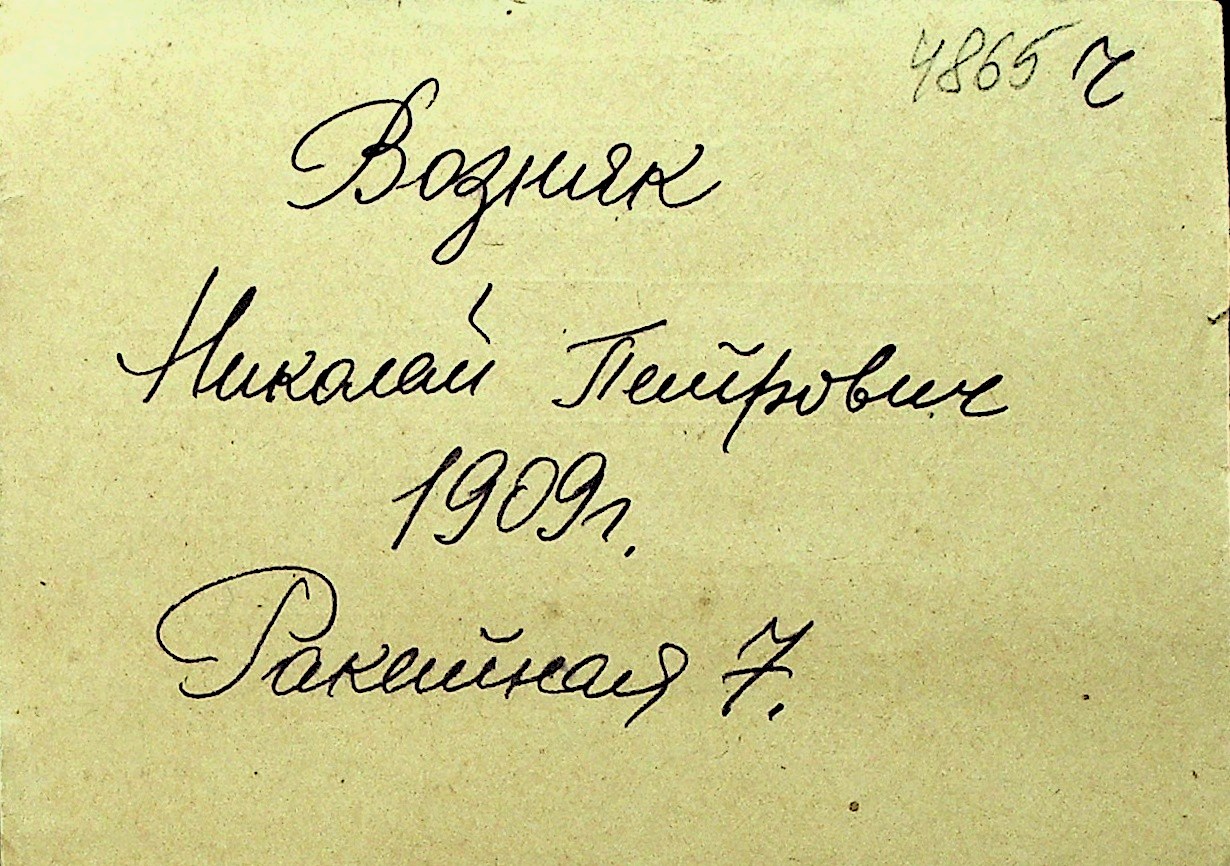 4865 ч
Возняк
Николай Петрович
1909г.
Ракетная 7.